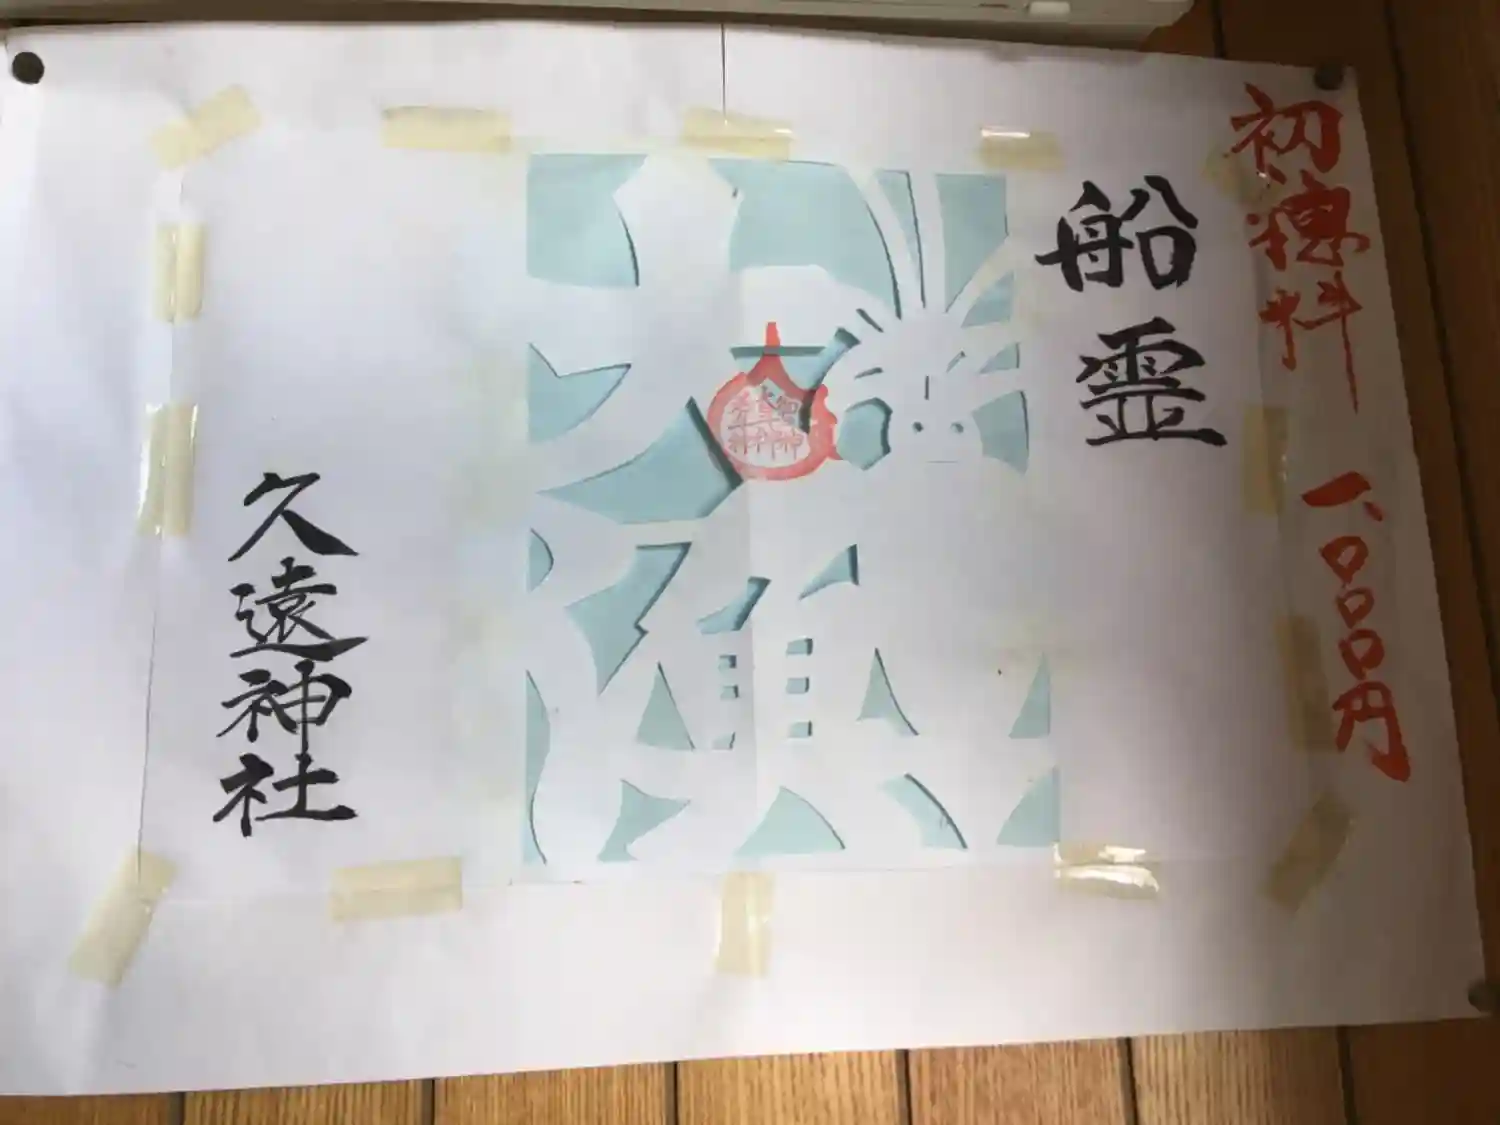 初穂料 一、〇〇〇円
船霊
久遠神社